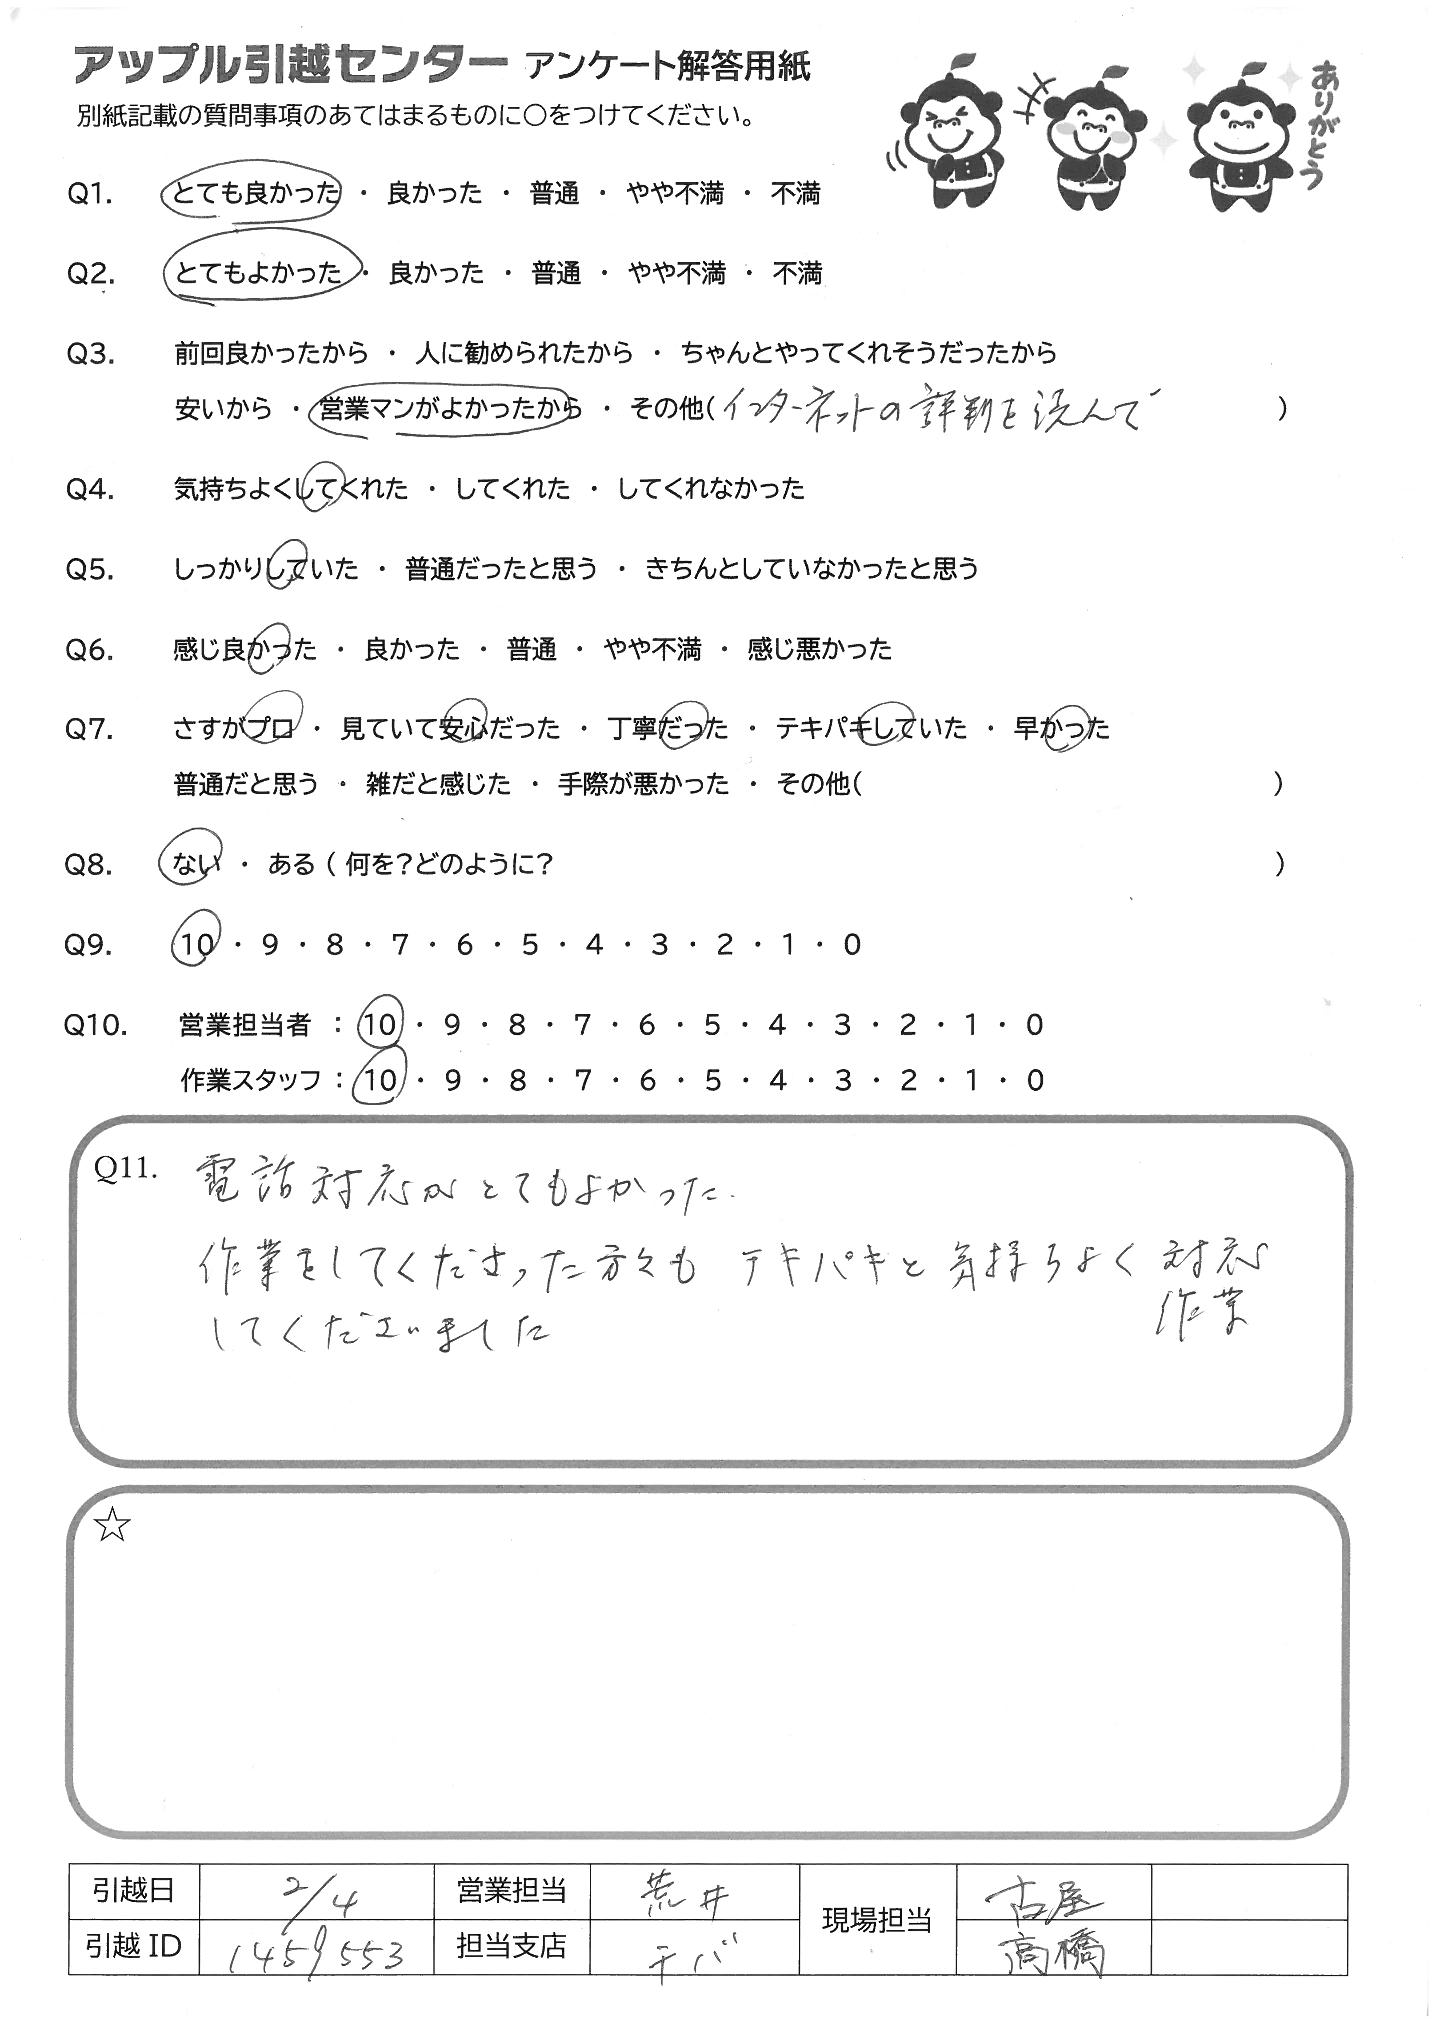 アップル引越センター アンケート解答用紙
別紙記載の質問事項のあてはまるものに○をつけてください。
ありがとう
Q1. とても良かった ・ 良かった ・ 普通 ・ やや不満 ・ 不満
Q2. とてもよかった ・ 良かった ・ 普通 ・ やや不満 ・ 不満
Q3. 前回良かったから ・ 人に勧められたから ・ ちゃんとやってくれそうだったから
安いから ・ 営業マンがよかったから ・ その他( インターネットの評判を読んで )
Q4. 気持ちよくしてくれた ・ してくれた ・ してくれなかった
Q5. しっかりしていた ・ 普通だったと思う ・ きちんとしていなかったと思う
Q6. 感じ良かった ・ 良かった ・ 普通 ・ やや不満 ・ 感じ悪かった
Q7. さすがプロ ・ 見ていて安心だった ・ 丁寧だった ・ テキパキしていた ・ 早かった
普通だと思う ・ 雑だと感じた ・ 手際が悪かった ・ その他( )
Q8. ない ・ ある ( 何を?どのように? )
Q9. 10 ・ 9 ・ 8 ・ 7 ・ 6 ・ 5 ・ 4 ・ 3 ・ 2 ・ 1 ・ 0
Q10. 営業担当者 : 10 ・ 9 ・ 8 ・ 7 ・ 6 ・ 5 ・ 4 ・ 3 ・ 2 ・ 1 ・ 0
作業スタッフ : 10 ・ 9 ・ 8 ・ 7 ・ 6 ・ 5 ・ 4 ・ 3 ・ 2 ・ 1 ・ 0
Q11. 電話対応がとてもよかった.
作業をしてくださった方々も テキパキと気持ちよく 対応
作業
してくださいました
☆
引越日 2/4 営業担当 荒井 現場担当 古屋
引越 ID 1459553 担当支店 チバ 高橋